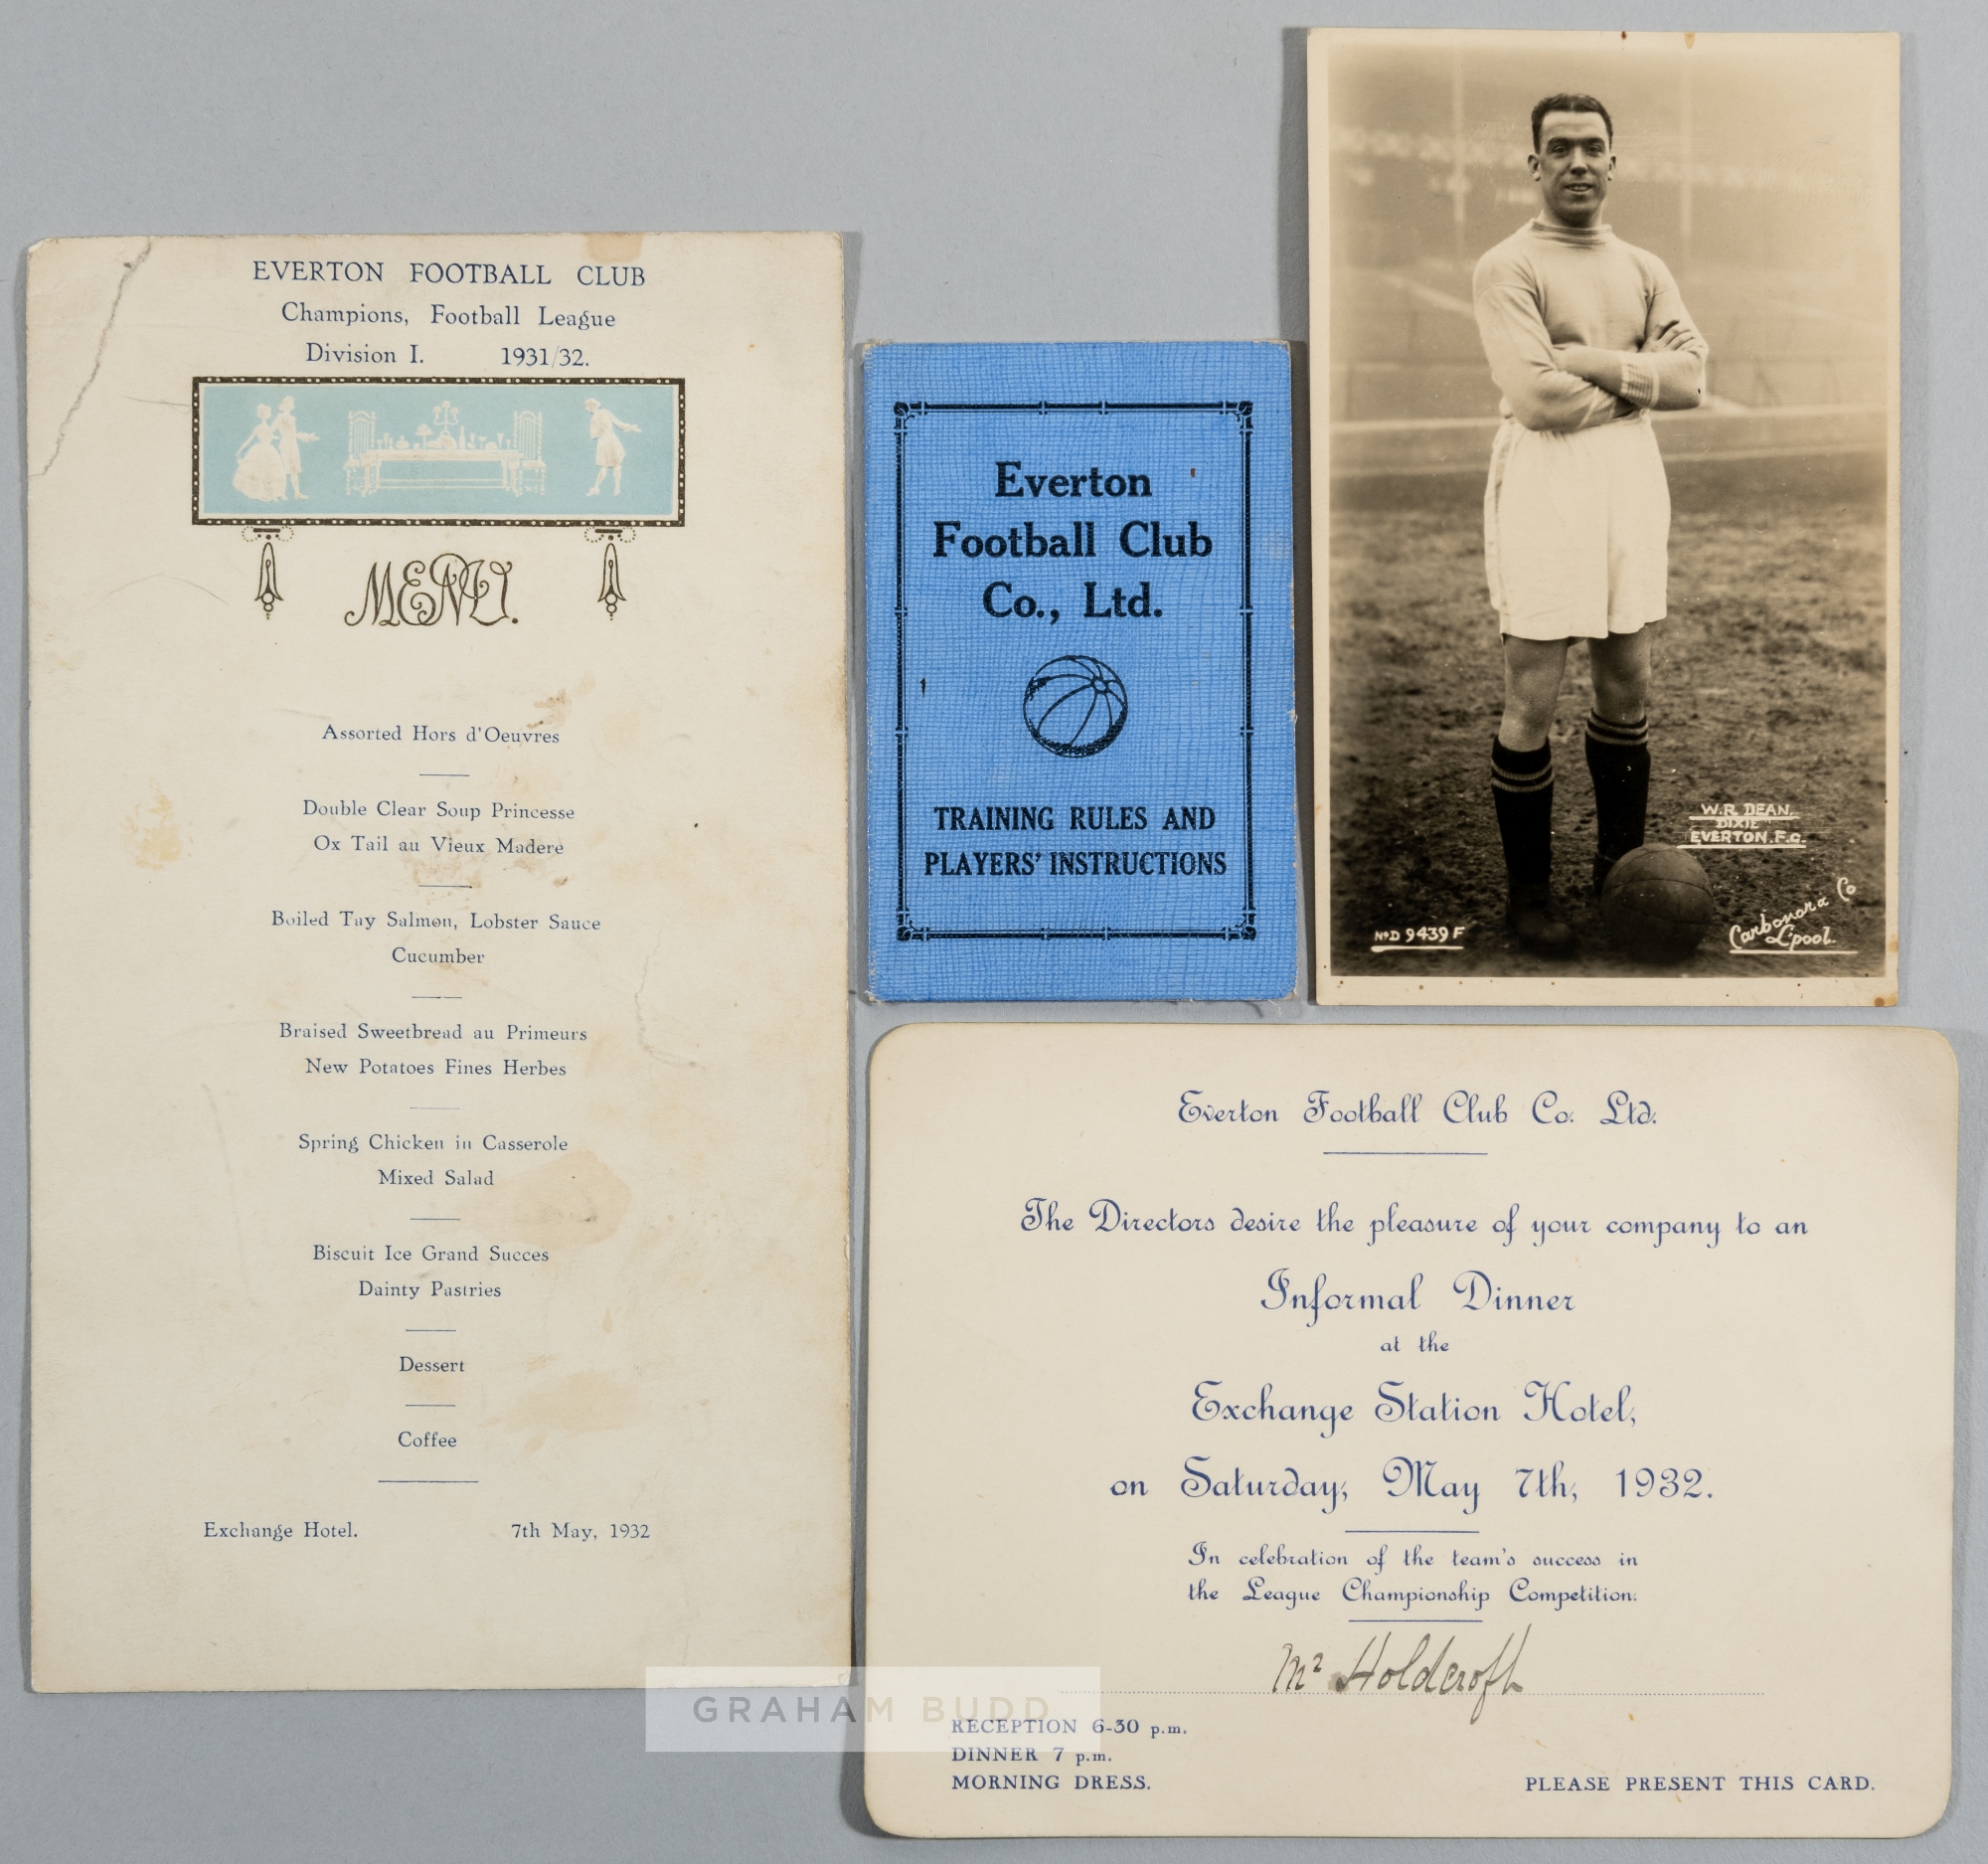 EVERTON FOOTBALL CLUB
Champions, Football League
Division I. 1931/32.
MENU.
Assorted Hors d'Oeuvres
Double Clear Soup Princesse
Ox Tail au Vieux Madere
Boiled Tay Salmon, Lobster Sauce
Cucumber
Braised Sweetbread au Primeurs
New Potatoes Fines Herbes
Spring Chicken in Casserole
Mixed Salad
Biscuit Ice Grand Succes
Dainty Pastries
Dessert
Coffee
Exchange Hotel. 7th May, 1932
Everton
Football Club
Co., Ltd.
TRAINING RULES AND
PLAYERS' INSTRUCTIONS
W.R. DEAN,
DIXIE
EVERTON.F.C.
NºD 9439 F
Carbonora Co
L'pool.
Everton Football Club Co. Ltd.
The Directors desire the pleasure of your company to an
Informal Dinner
at the
Exchange Station Hotel,
on Saturday, May 7th, 1932.
In celebration of the team's success in
the League Championship Competition.
Mr Holdcroft
RECEPTION 6-30 p.m.
DINNER 7 p.m.
MORNING DRESS.
PLEASE PRESENT THIS CARD.
GRAHAM BUDD